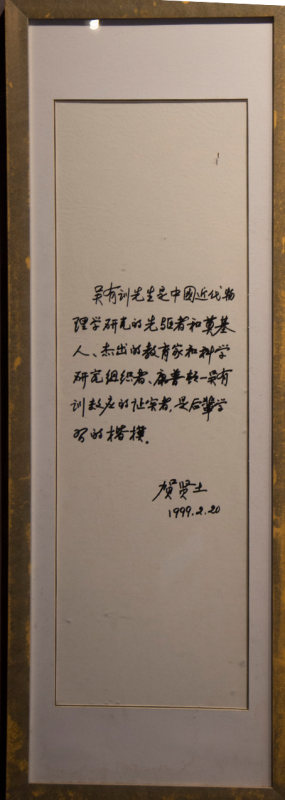 吴有训先生是中国近代物
理学研究的先驱者和奠基
人、杰出的教育家和科学
研究组织者、康普顿—吴有
训效应的证实者,是后辈学
习的楷模.
贺贤土
1999.2.20